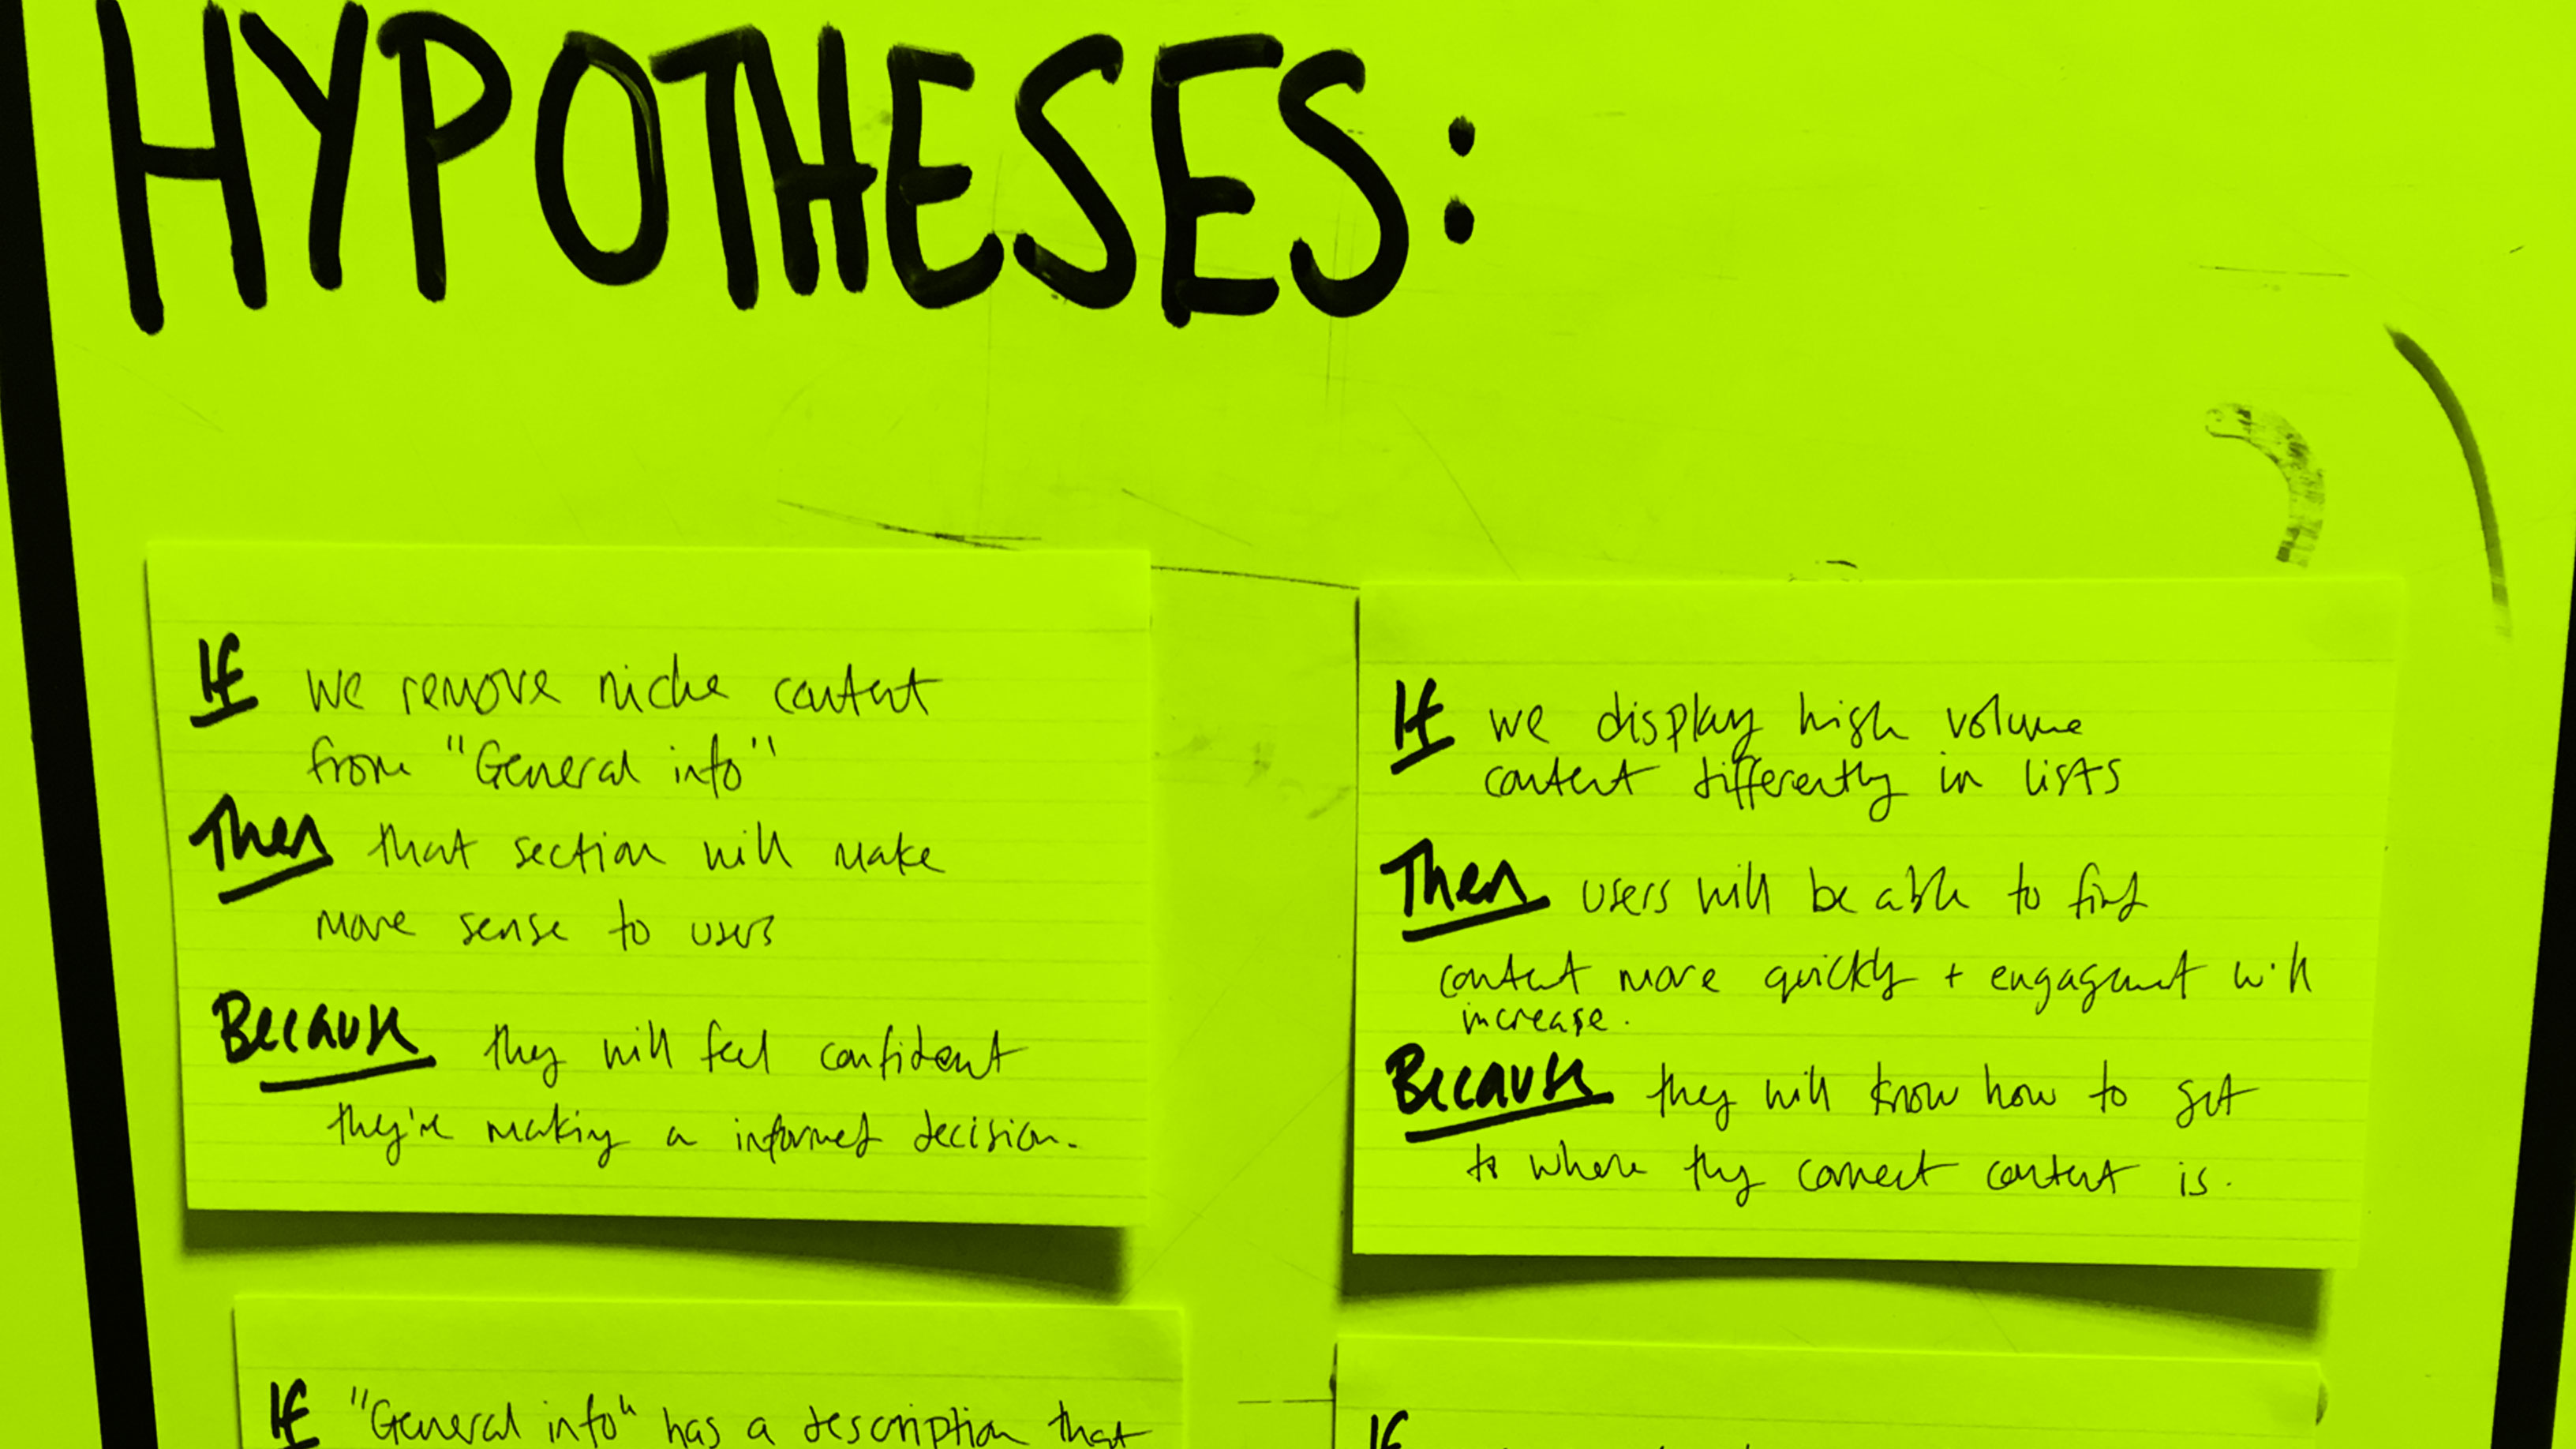 HYPOTHESES:
If we remove niche content
from "General info"
Then that section will make
more sense to users
Because they will feel confident
they're making a informed decision.
If we display high volume
content differently in lists
Then users will be able to find
content more quickly + engagement will
increase.
Because they will know how to get
to where thy correct content is.
If "General info" has a description that
If